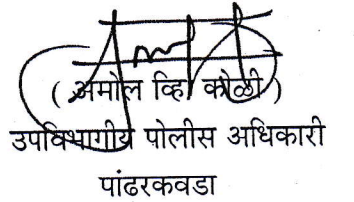 ( अमोल व्हि कोळी )
उपविभागीय पोलीस अधिकारी
पांढरकवडा